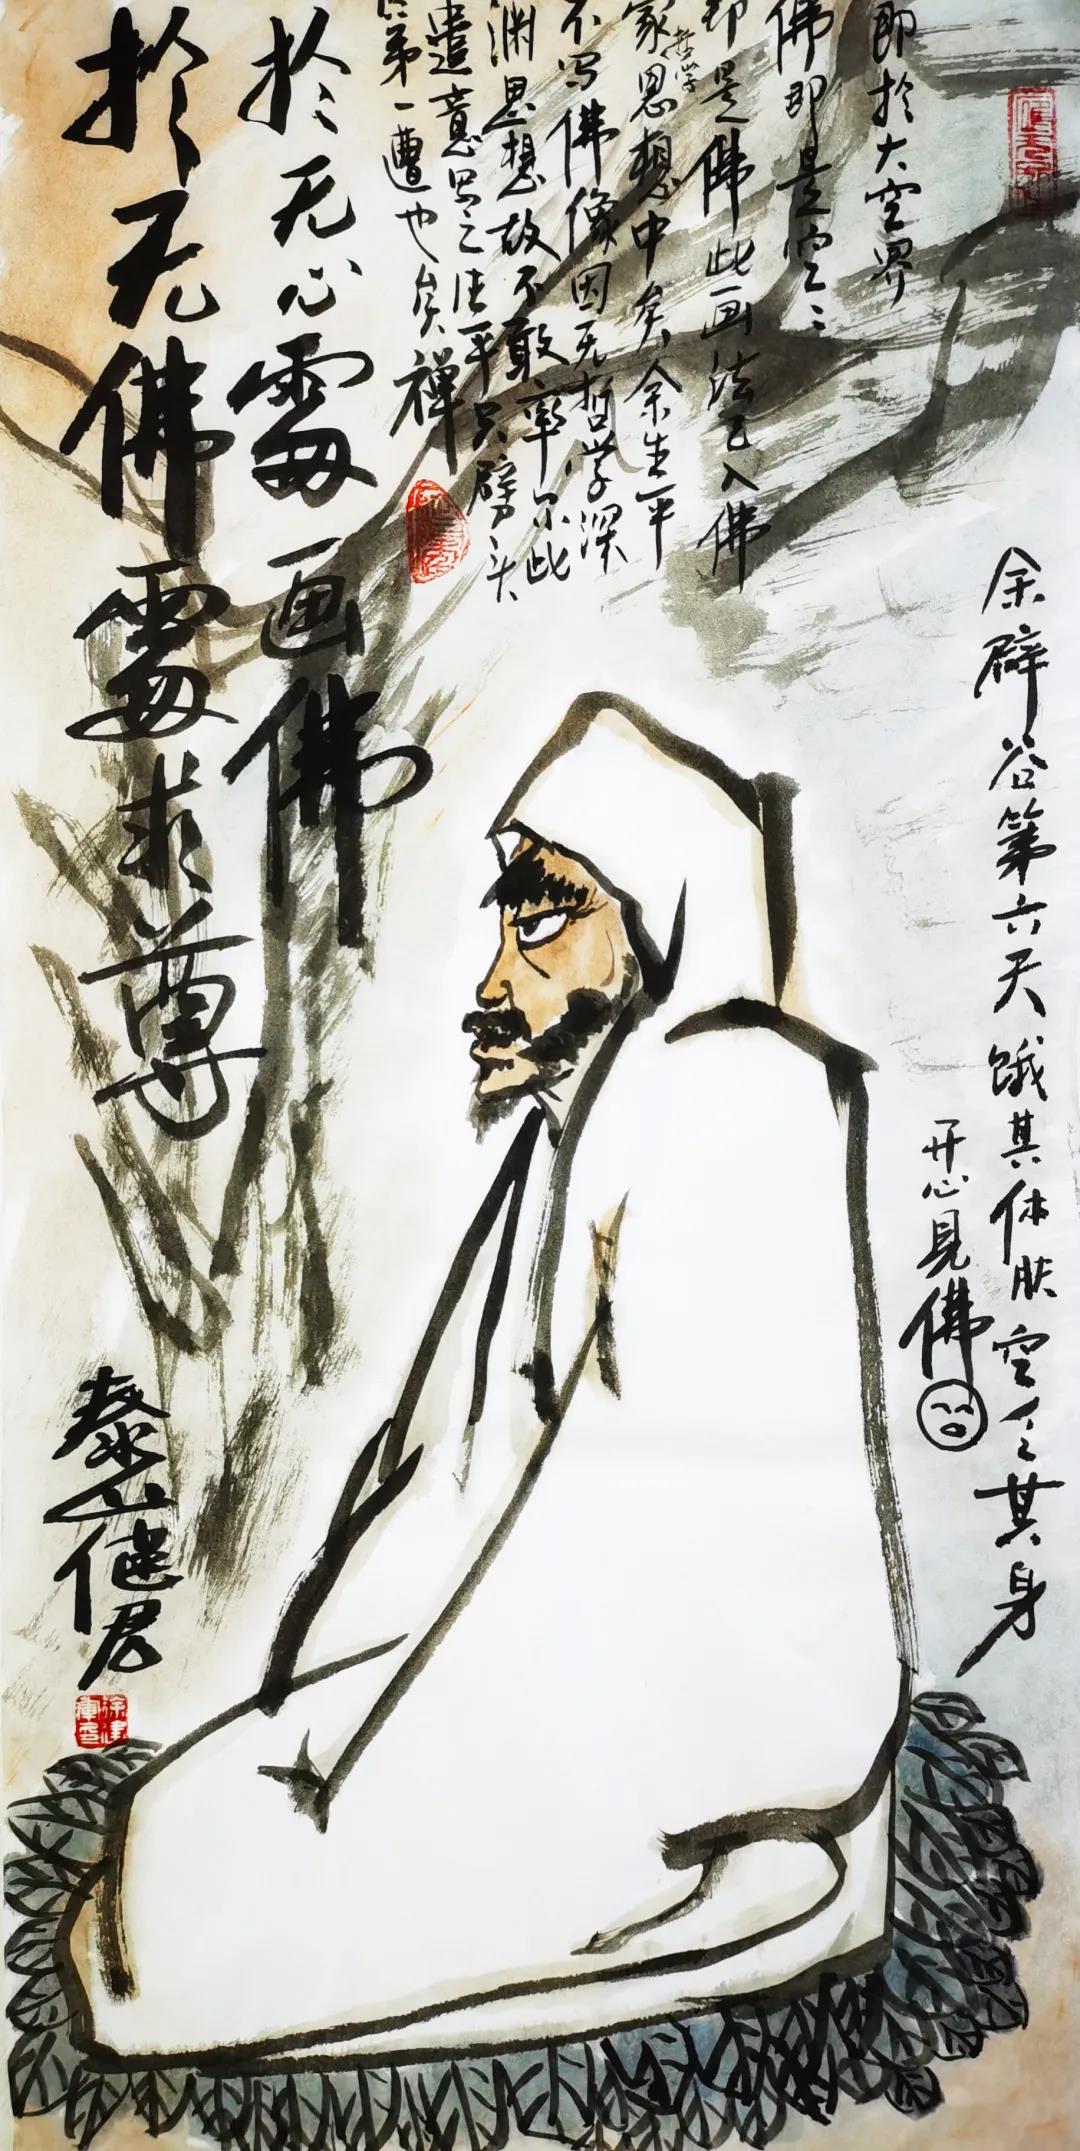 余辟谷第六天饿其体肤空乏其身
开心见佛
即於大空界
佛即是空〻
即是佛此画法已入佛
家哲学思想中矣余生平
不写佛像因无哲学深
渊思想故不敢率尔此
遣意写之法平只劈头
第一遭也矣禅
於无心處画佛
於无佛處求尊
泰山健君